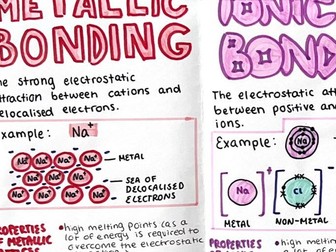 METALLIC
BONDING
The strong electrostatic
attraction between cations and
delocalised electrons.
Example: Na⁺
Na⁺ Na⁺ Na⁺ Na⁺
Na⁺ Na⁺ Na⁺ Na⁺
Na⁺ Na⁺ Na⁺ Na⁺
METAL
SEA OF
DELOCALISED
ELECTRONS
PROPERTIES
OF METALLIC
• high melting points (as a
lot of energy is required to
overcome the electrostatic
IONIC
BOND
The electrostatic att
between positive an
ions.
Example:
Na
Na +
Cl
METAL NON-METAL
PROPERTIES
• high